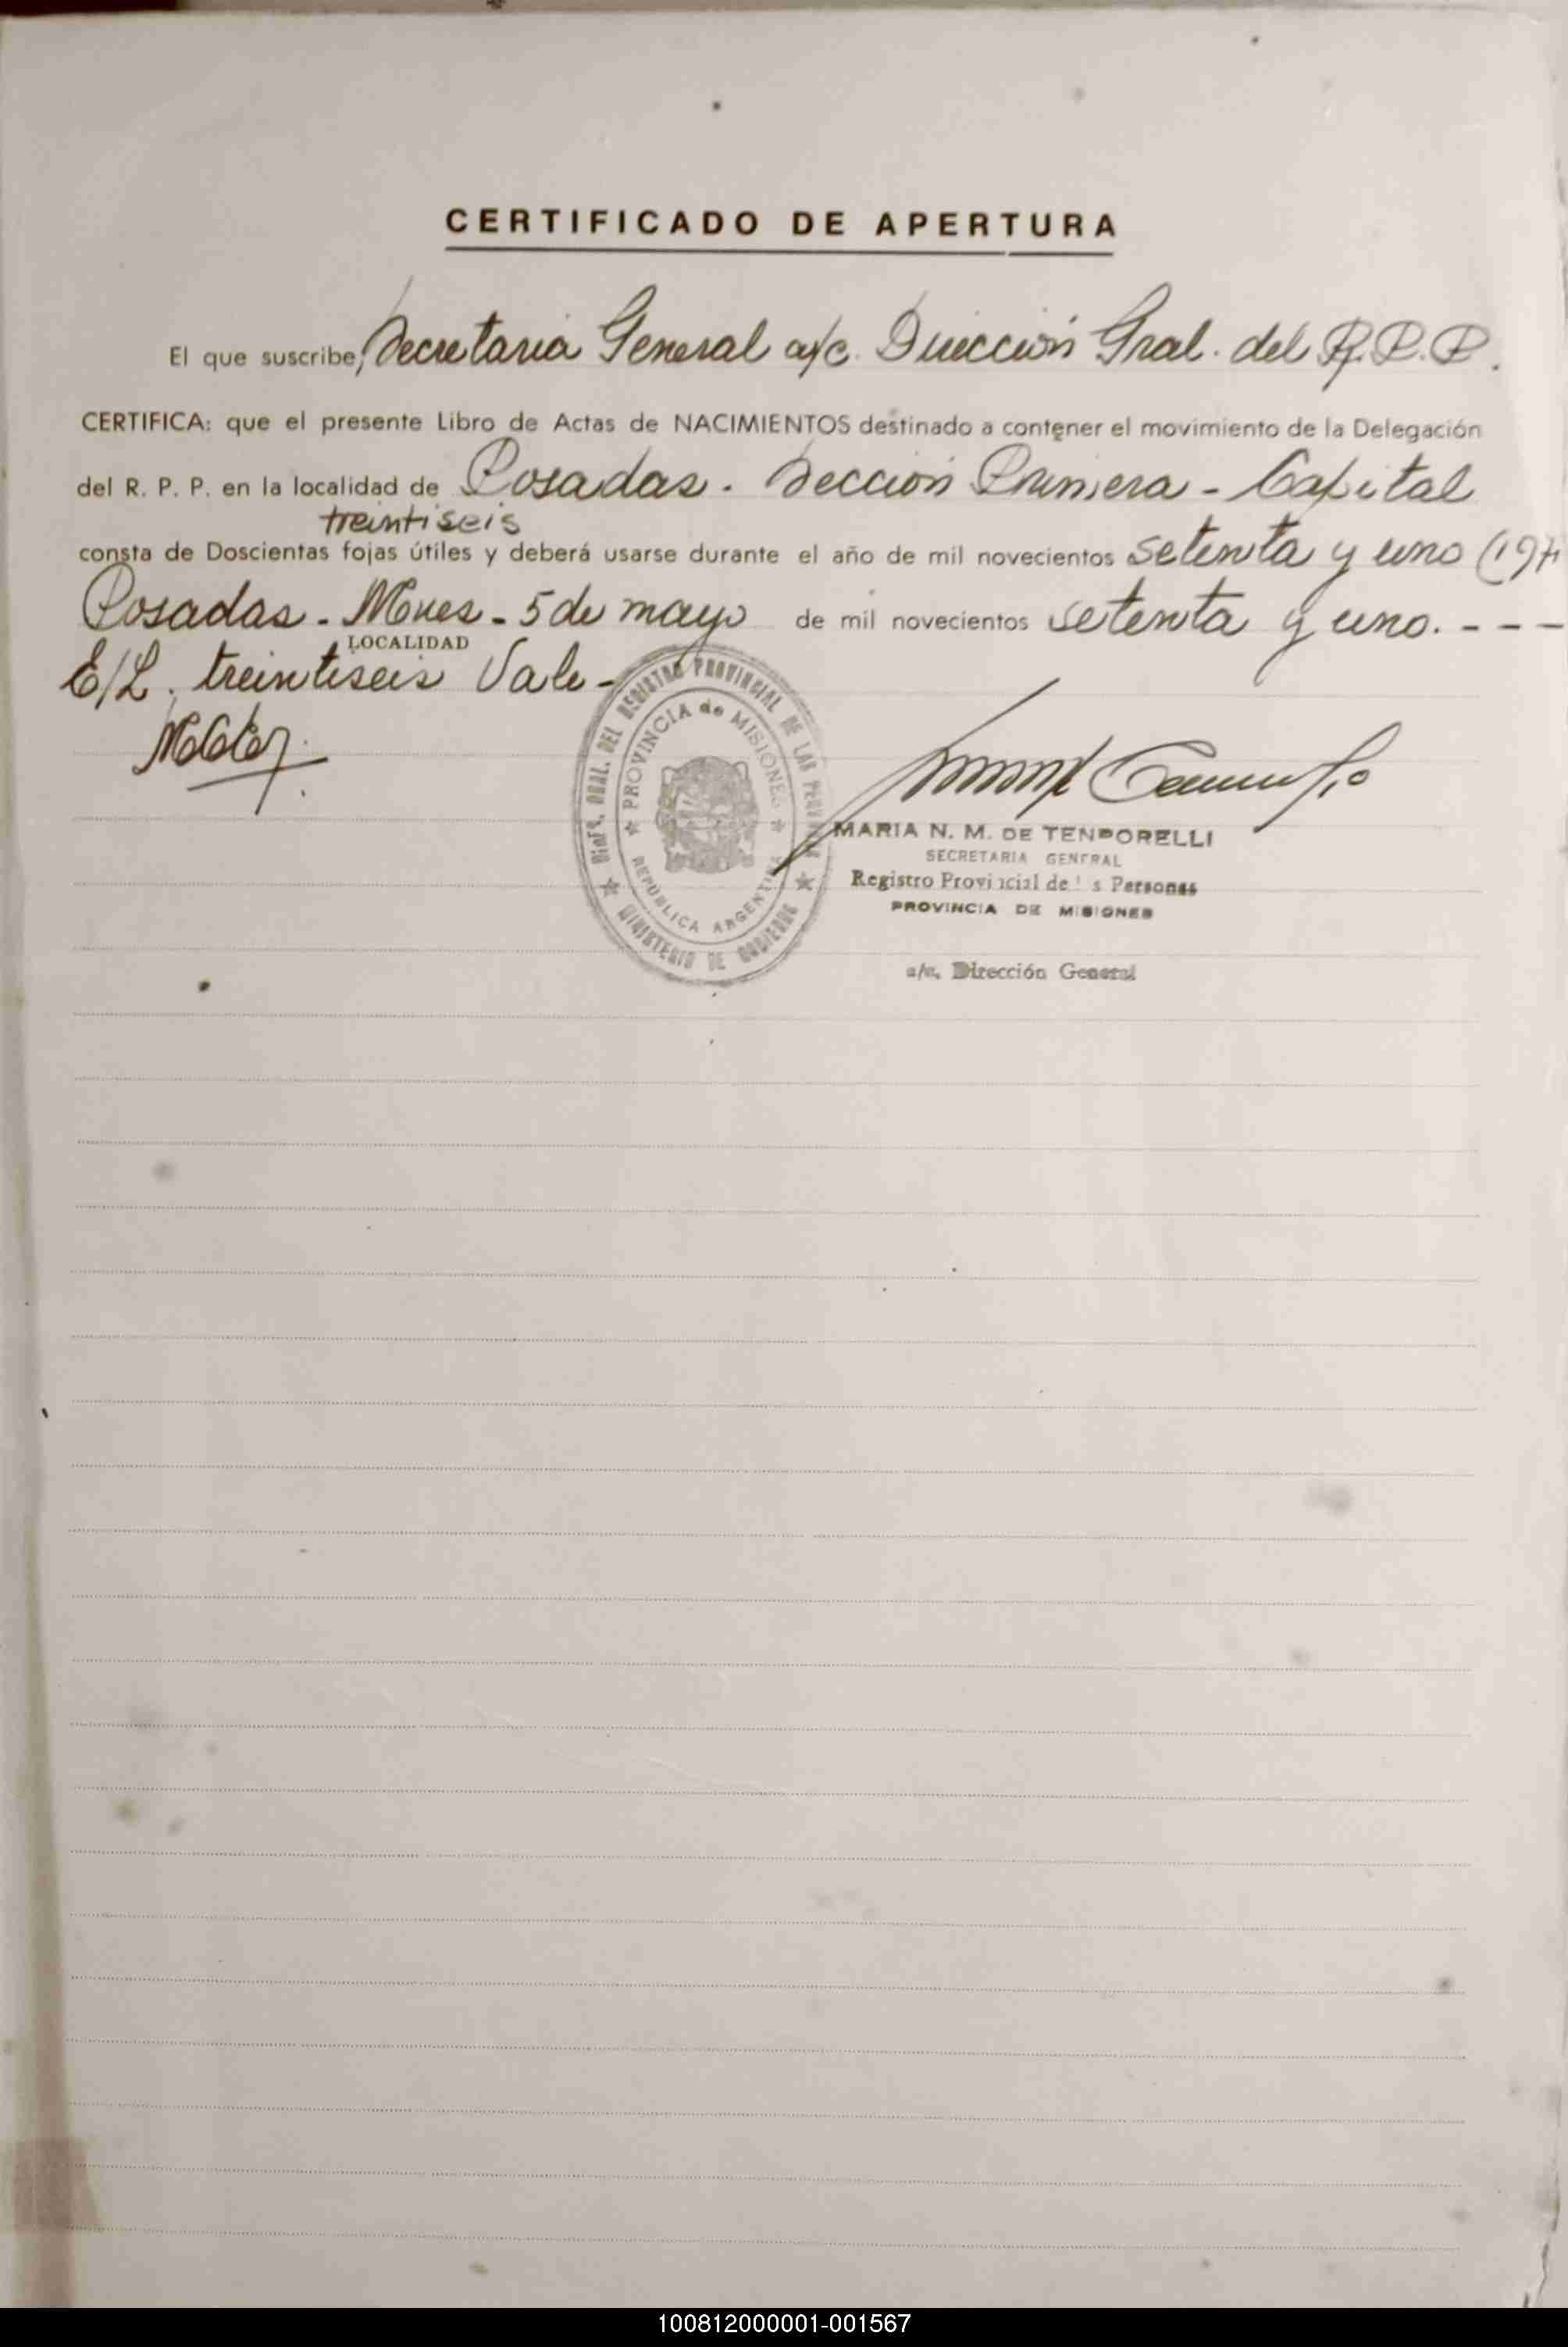 CERTIFICADO DE APERTURA
El que suscribe, Secretaria General a/c. Dirección Gral. del R.P.P.
CERTIFICA: que el presente Libro de Actas de NACIMIENTOS destinado a contener el movimiento de la Delegación
del R. P. P. en la localidad de Posadas. Sección Primera - Capital
treintiseis
consta de Doscientas fojas útiles y deberá usarse durante el año de mil novecientos setenta y uno (1971
Posadas - Mnes - 5 de mayo de mil novecientos setenta y uno. - - -
LOCALIDAD
E/L. treintiseis Vale -
DIREC. GRAL. DEL REGISTRO PROVINCIAL DE LAS PERSONAS
PROVINCIA de MISIONES
REPÚBLICA ARGENTINA
MINISTERIO DE GOBIERNO
MARIA N. M. DE TEMPORELLI
SECRETARIA GENERAL
Registro Provincial de las Personas
PROVINCIA DE MISIONES
a/c. Dirección General
100812000001-001567